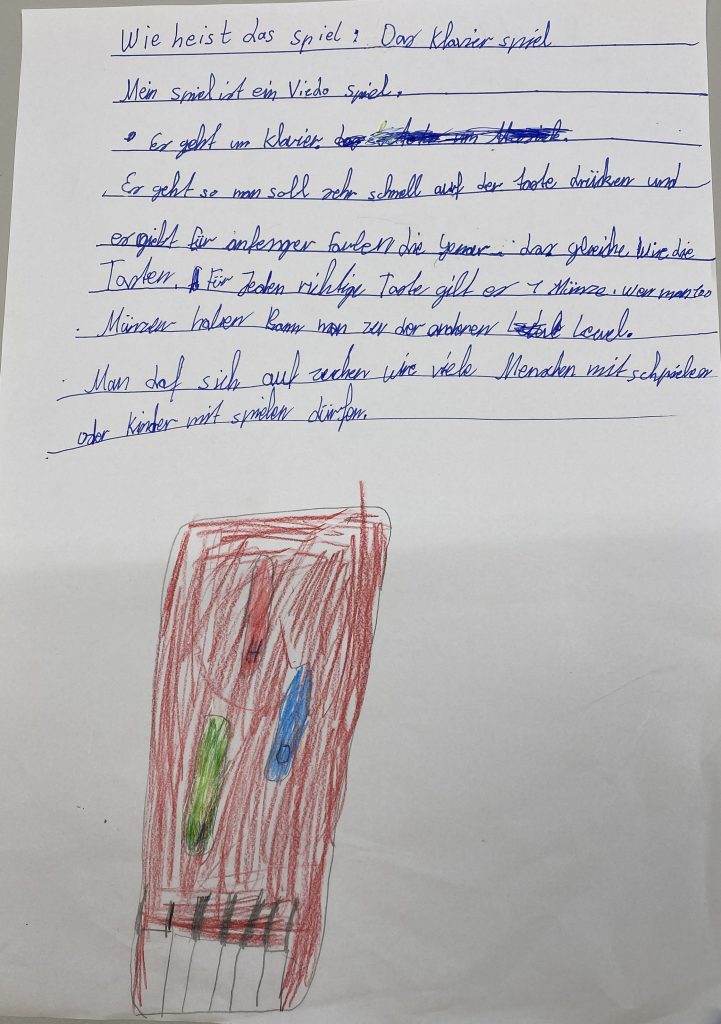 Wie heist das spiel: Das Klavier spiel
Mein spiel ist ein Viedo spiel.
• Er geht um Klavier.
. Er geht so man soll sehr schnell auf der taste drücken und
er giebt für anfenger farben die genau das gleiche wie die
Tasten. Für Jeden richtige Taste gilt er 1 Münze. wen man 100
. Münzen haben kann man zu der anderen Level.
. Man daf sich auf suchen wie viele Menschen mit schpielen
. oder Kinder mit spielen dürfen.
H
O